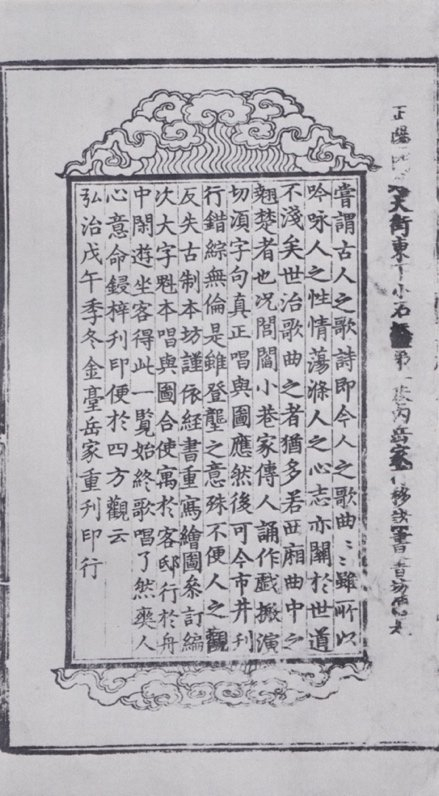 正陽大街東下小石橋第一巷內岳家行移書書坊是也
嘗謂古人之歌詩即今人之歌曲〻〻雖所以
吟咏人之性情蕩滌人之心志亦關於世道
不淺矣世治歌曲之者猶多若西廂曲中之
翹楚者也況閭閻小巷家傳人誦作戲搬演
切須字句真正唱與圖應然後可今市井刊
行錯綜無倫是雖登壟之意殊不便人之觀
反失古制本坊謹依經書重寫繪圖參訂編
次大字魁本唱與圖合使寓於客邸行於舟
中閑遊坐客得此一覽始終歌唱了然爽人
心意命鋟梓刊印便於四方觀云
弘治戊午季冬金臺岳家重刊印行